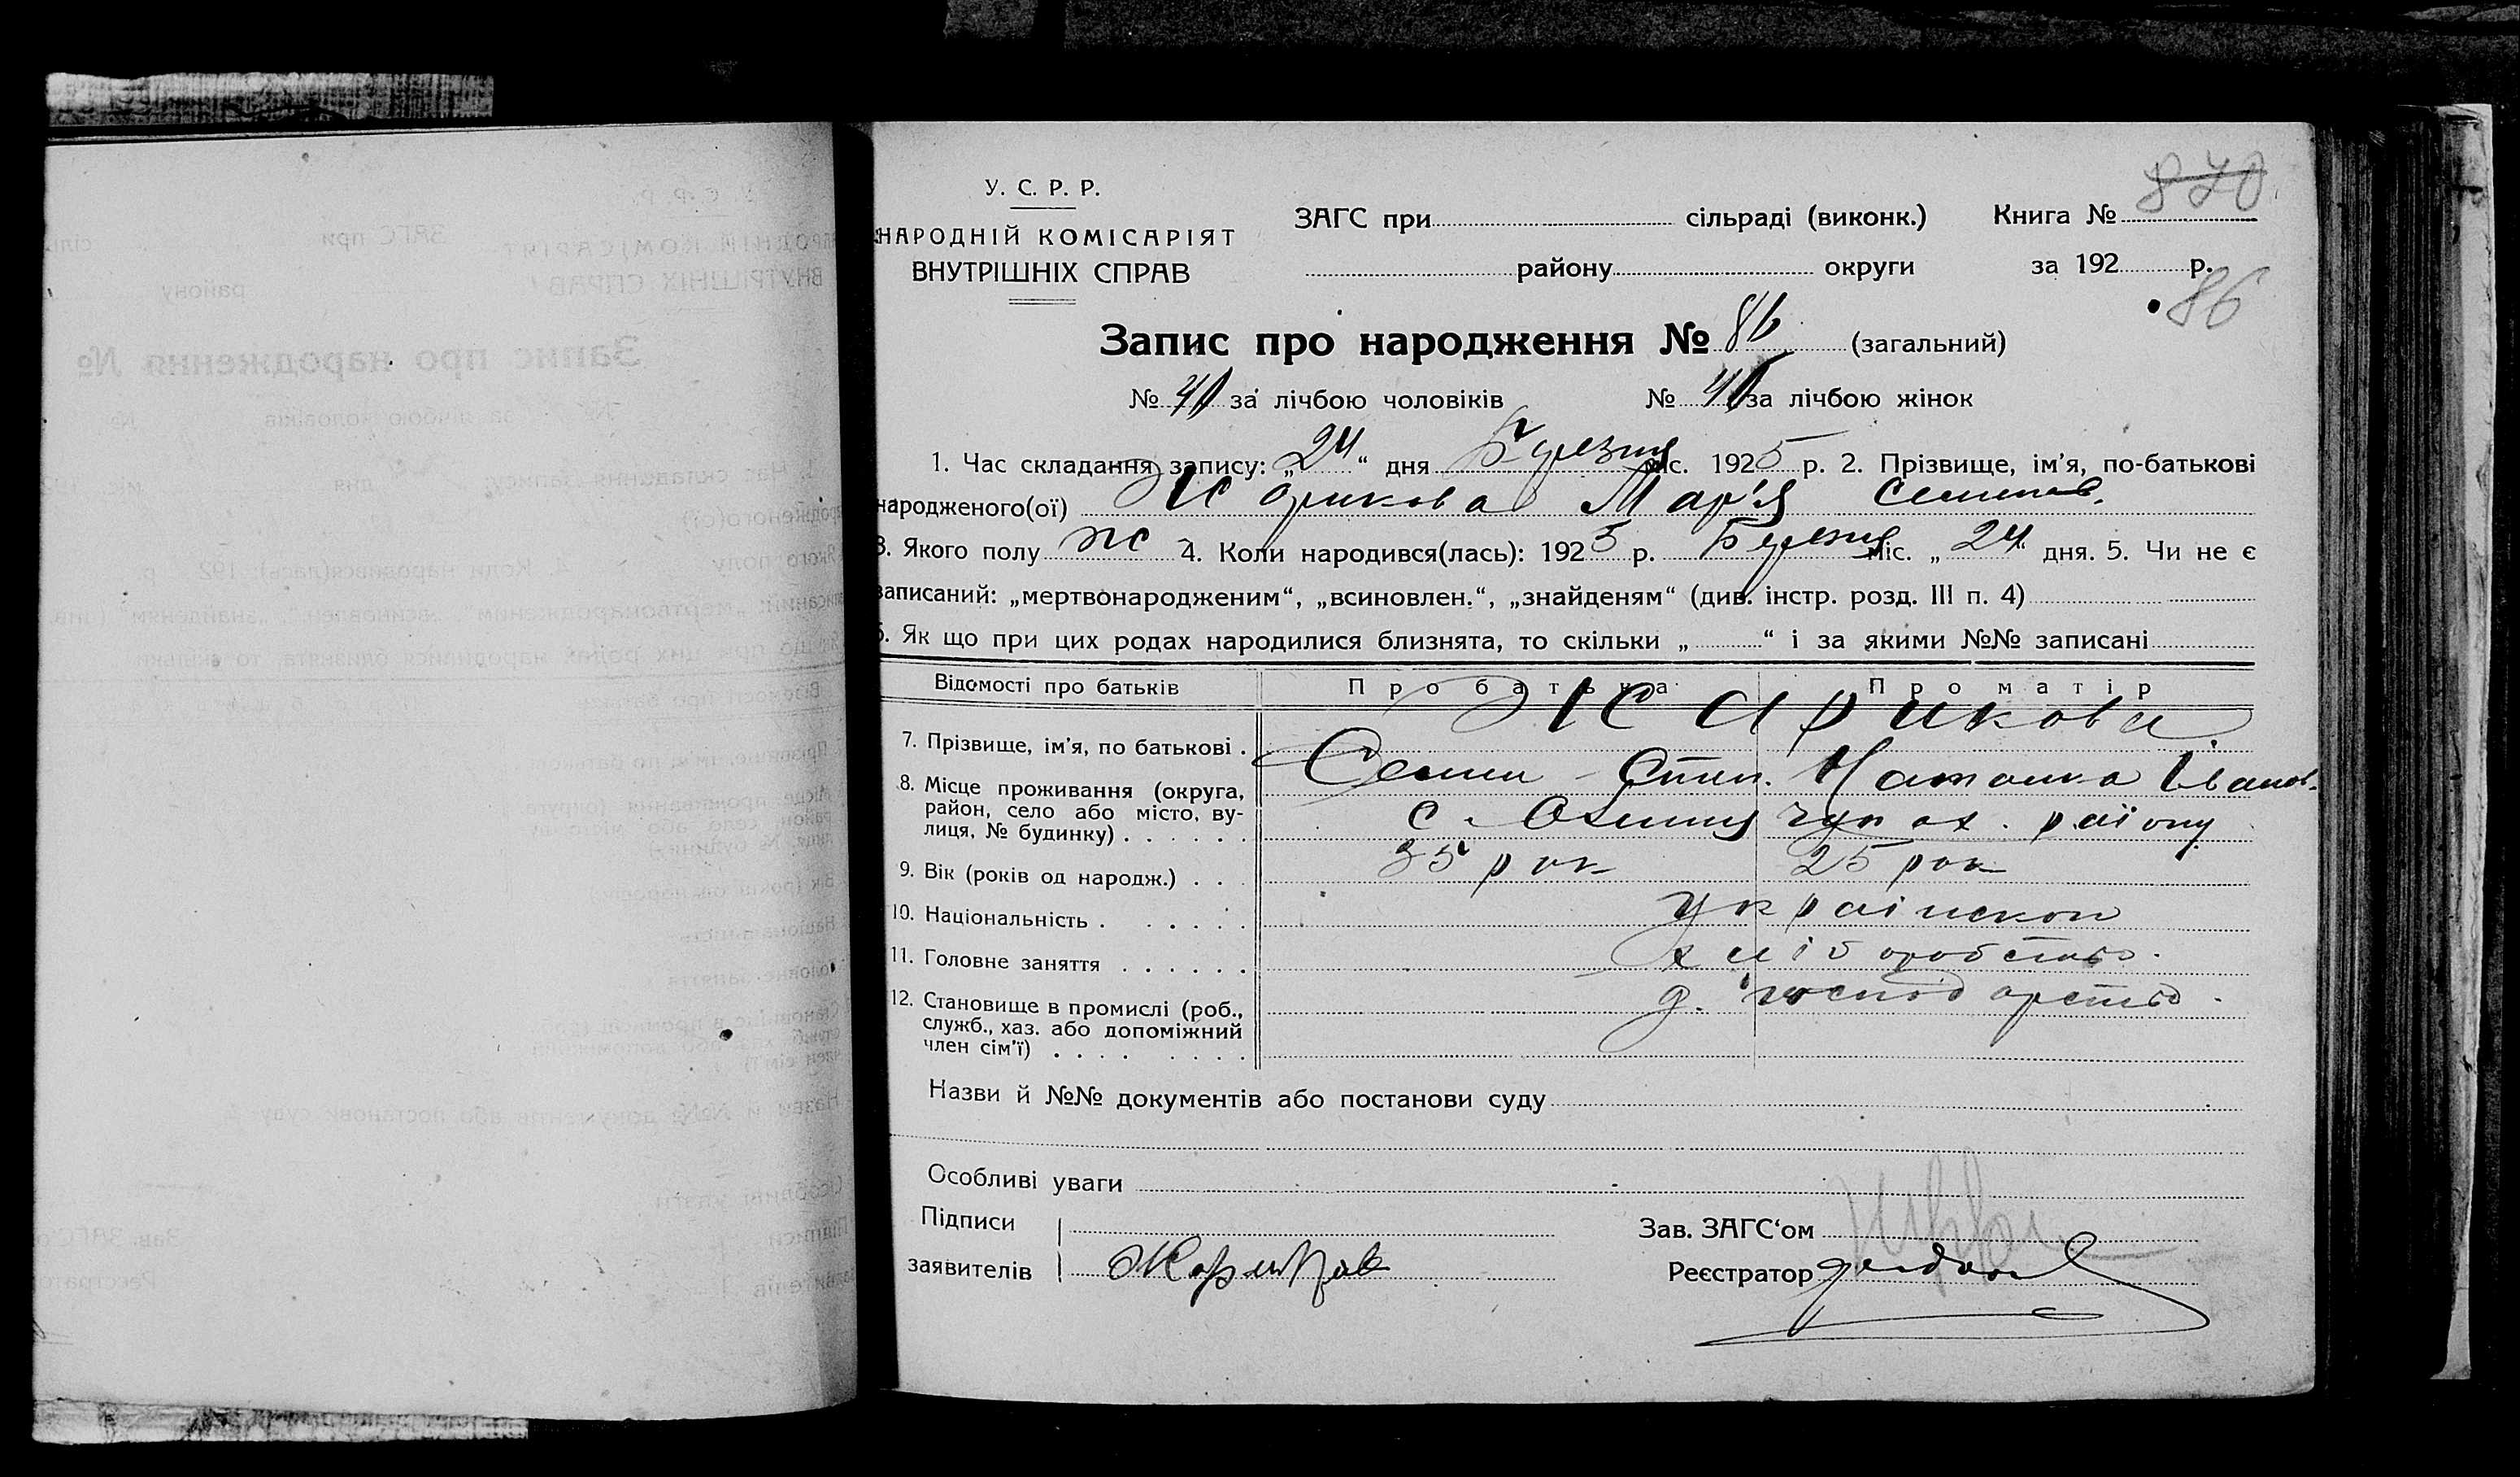 870
У. С. Р. Р.
НАРОДНІЙ КОМІСАРІЯТ
ВНУТРІШНІХ СПРАВ
ЗАГС при сільраді (виконк.) Книга №
району округи за 192 р.
86
Запис про народження № 86 (загальний)
№ за лічбою чоловіків № за лічбою жінок
1. Час складання запису: „24“ дня Березня міс. 1925 р. 2. Прізвище, ім’я, по-батькові
народженого(ої) Жарикова Мар'я Семенов.
3. Якого полу ж 4. Коли народився(лась): 1925 р. Березня міс. „24“ дня. 5. Чи не є
записаний: „мертвонародженим“, „всиновлен.“, „знайденям“ (див. інстр. розд. III п. 4)
6. Як що при цих родах народилися близнята, то скільки „ “ і за якими №№ записані
Відомості про батьків Про батька Про матір
7. Прізвище, ім’я, по батькові . Жарикови
Семен Степ. Наталка Іванов.
8. Місце проживання (округа,
район, село або місто, ву-
лиця, № будинку) . . . . . . с. району
9. Вік (років од народж.) . . . 35 рок 25 рок
10. Національність . . . . . .
11. Головне заняття . . . . . . хліборобство.
12. Становище в промислі (роб.,
служб., хаз. або допоміжний
член сім’ї) . . . . . . . . д. господарство.
Назви й №№ документів або постанови суду
Особливі уваги
Підписи
заявителів Жариков
Зав. ЗАГС‘ом
Реєстратор